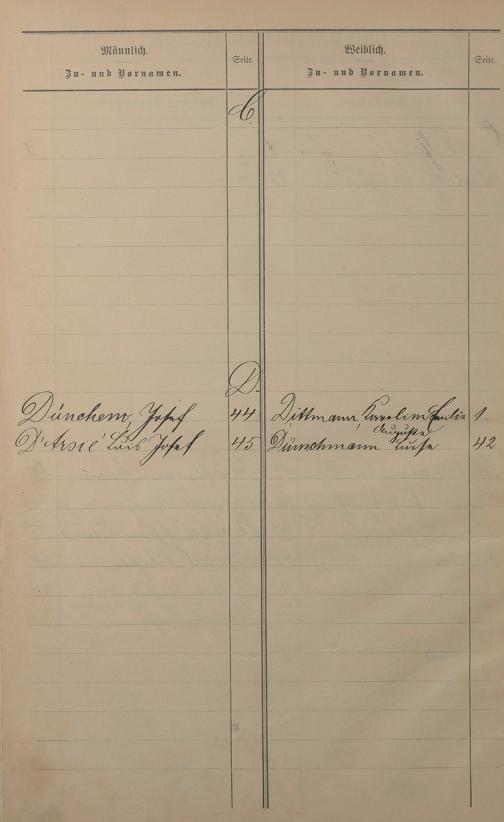 Männlich. Seite. Weiblich. Seite.
Zu- und Vornamen. Zu- und Vornamen.
C.
D.
Dünchem, Josef 44 Dittmann, Karoline Emilie 1.
D'Arsié Luis Josef 45 Dünschmann Auguste 42